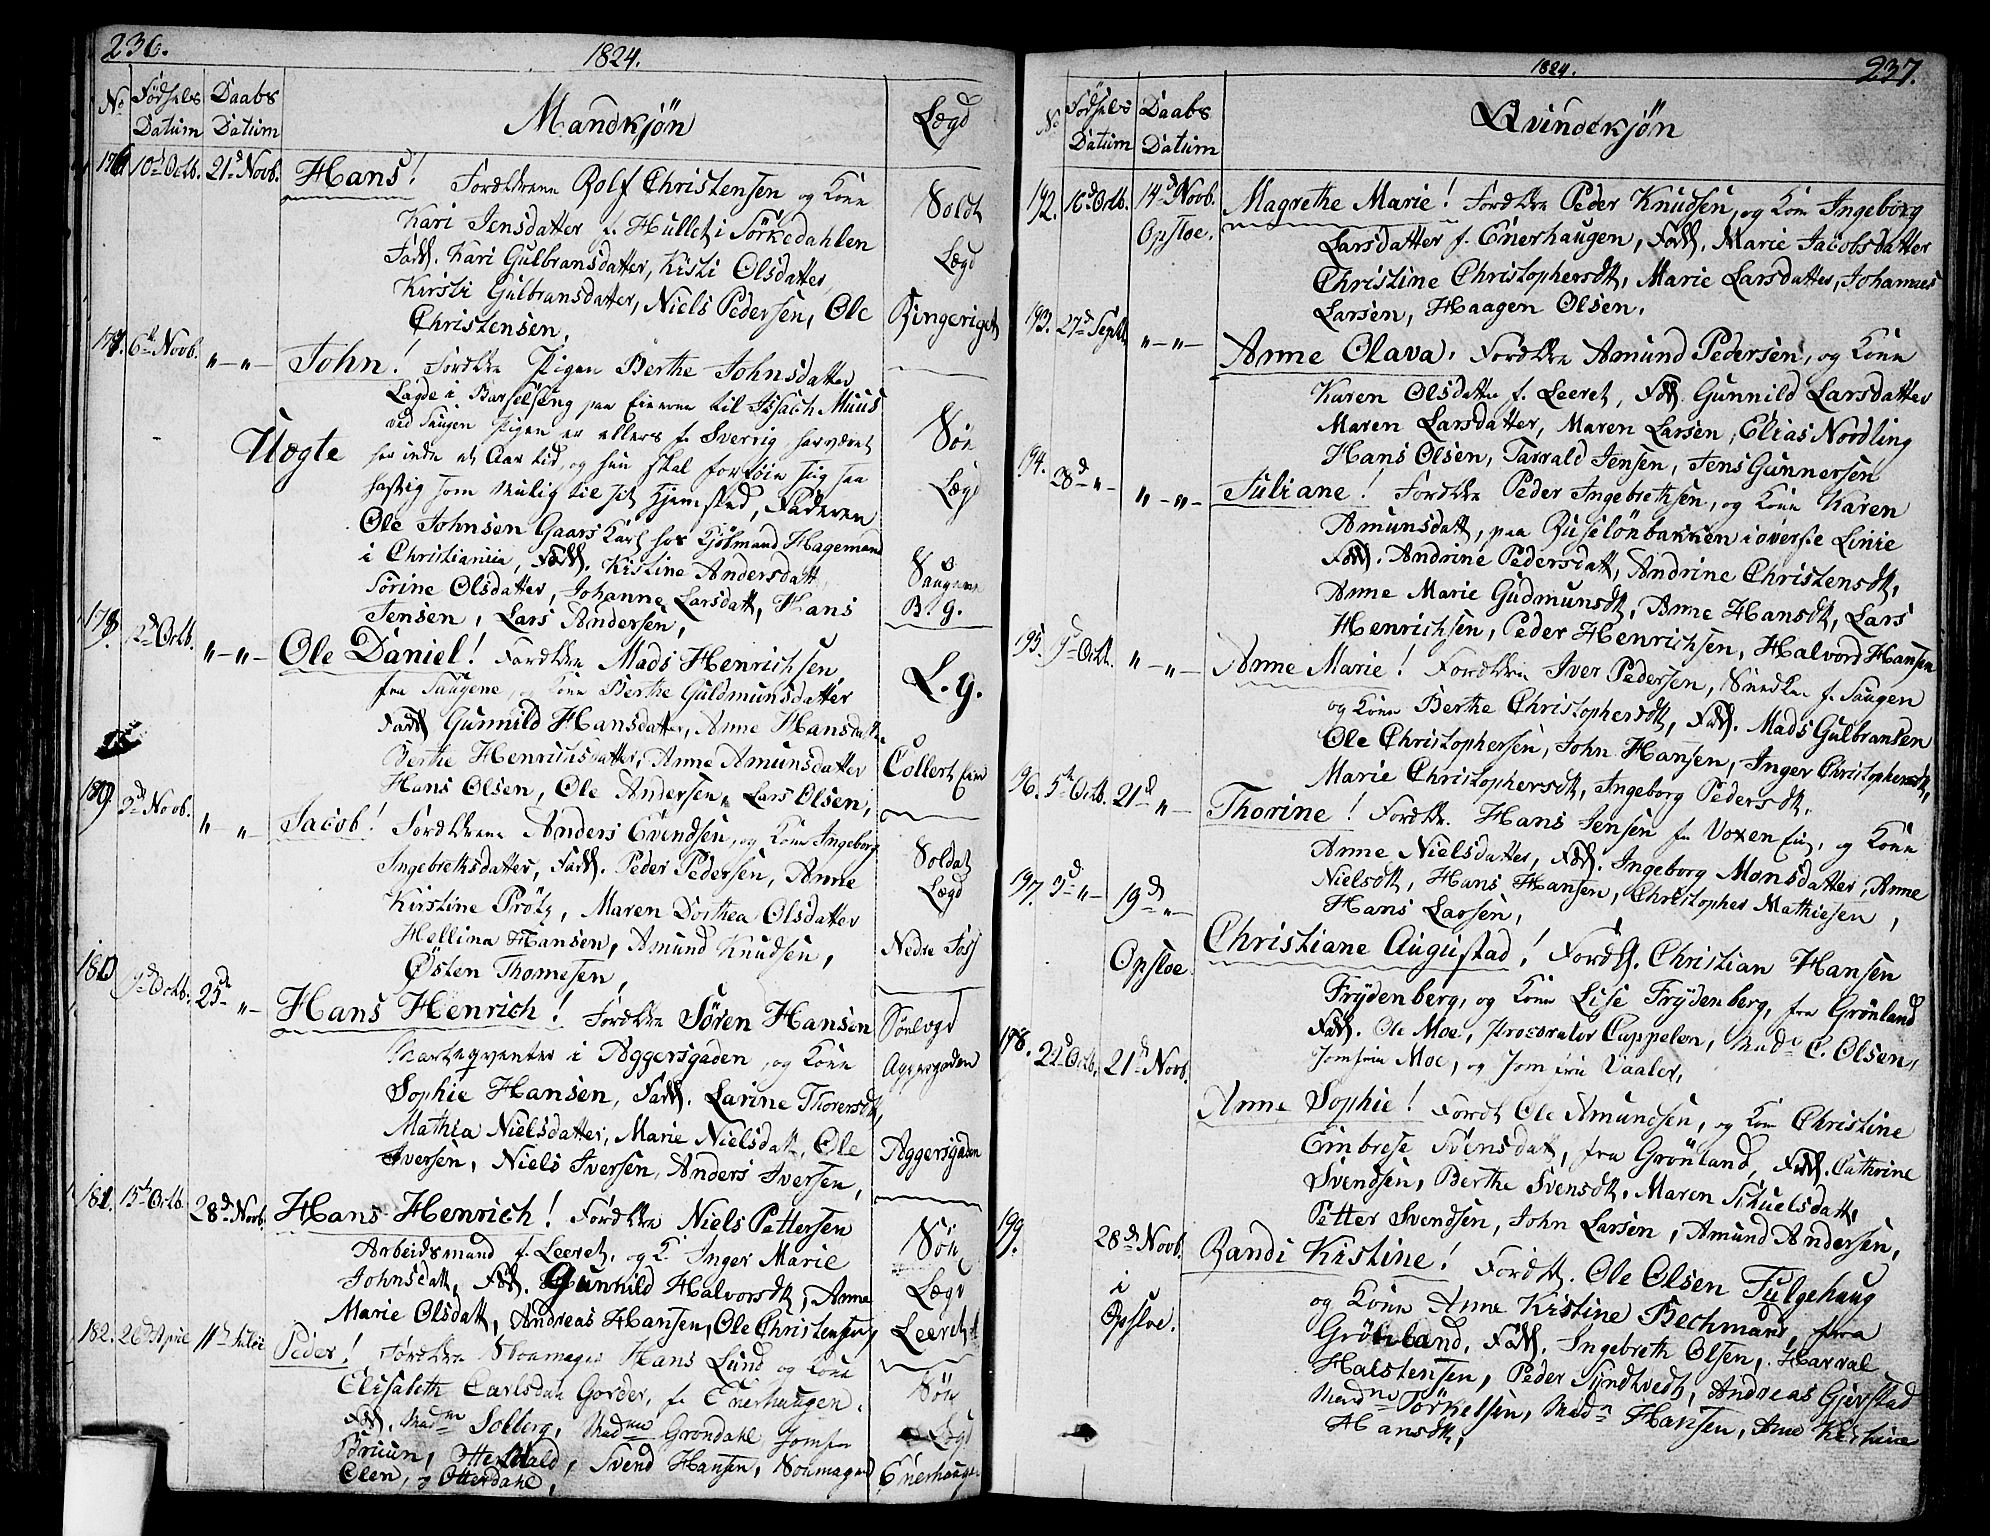 236.
1824.
No Födsels Daabs
Datum Datum
Mandkjön
Lægd
176 10d Octb. 21d Novb. Hans! Foreldrene Rolf Christensen og Kone
Kari Jensdatter f. Hullet i Sörkedahlen
Fadd. Kari Gulbransdatter, Kisti Olsdatter,
Kirsti Gulbransdatter, Niels Pedersen, Ole
Christensen,
Soldt
Lægd
Ringeriget
177. 6te Novb. "-"- John! Foreldre Pigen Berthe Johnsdatter
Lagde i Barselseng paa Eierne til Isach Muus
ved Saugen Pigen er ellers f. Sverrig, har været
her inde et Aars tid, og hun skal forföie sig saa
hastig som mulig til sit Hjemsted, Faderen
Ole Johnsen Gaars Karl hos Kjöbmand Hagemand
i Christiania, Fadd. Kistine Andersdatt.
Sörine Olsdatter, Johanne Larsdatt, Hans
Jensen, Lars Andersen,
Uægte
Sön
Lægd
Saugene
B. g.
178. 2d Octb. "-"- Ole Daniel! Foreldre Mads Henrichsen
fra Saugene, og Kone Berthe Guldmunsdatter
Fadd Gunnild Hansdatter, Anne Hansdatt.
Berthe Henrichsdatter, Anne Amunsdatter
Hans Olsen, Ole Andersen, Lars Olsen,
L. g.
Collert Eier
179. 3d Novb. " "- Jacob! Foreldrene Anders Evendsen, og Kone Ingeborg
Ingebrethsdatter, Fadd. Peder Pedersen, Anne
Kirstine Prötz, Maren Dorthea Olsdatter
Hellina Hansen, Amund Knudsen,
Östen Thomesen,
Soldat
Lægd
Nedre Foss
180 9d Octb. 25de "- Hans Henrich! Foreldre Sören Hansen
Marteqventer i Aggersgaden, og Kone
Sophie Hansen, Fadd. Larine Thorersdt,
Mathia Nielsdatter, Marie Nielsdatt, Ole
Iversen, Niels Iversen, Anders Iversen,
Sönlægd
Aggersgaden
Aggersgaden
181. 15de Octb. 28de Novb. Hans Henrich! Foreldre Niels Pettersen
Arbeidsmand f. Leeret, og K. Inger Marie
Johnsdatt, Fad. Gunnild Halvorsdt, Anne
Marie Olsdatt, Andreas Hansen, Ole Christensen,
Sön
Lægd
Leeret
182. 26d April 11te Julii Peder! Foreldre Skoemager Hans Lund og Kone
Elisabeth Carlsdatt Gorder, f. Enerhaugen.
Fad. Madm Solberg, Madme Gröndahl, Jomfr
Bruun, Otterdald, Svend Hansen, Skomager
Olen, og Otterdahl,
Sön
Lægd
Enerhaugen

1824.
237.
No Födsels Daabs
Datum Datum
Qvindekjön
192. 16d Octb. 14d Novb.
Opsloe.
Magrethe Marie! Foreldre Peder Knudsen, og Kone Ingeborg
Larsdatter f. Enerhaugen, Fadd. Marie Jacobsdatter
Christine Christophersdt, Marie Larsdatter, Johannes
Larsen, Haagen Olsen.
193. 27d Septb. "-"- Anne Olava. Foreldre Amund Pedersen, og Kone
Karen Olsdatter f. Leeret, Fadd. Gunnild Larsdatter
Maren Larsdatter, Maren Larsen, Elias Nordling
Hans Olsen, Tarrald Jensen, Jens Gunnersen
194. 28d "- "-"- Juliane! Foreldre Peder Ingebrethsen, og Kone Karen
Amunsdatt, paa Ruselönbakken i överste Linie
Fadd. Andrine Pedersdatt, Andrine Christensdt,
Anne Marie Gudmunsdt, Anne Hansdt, Lars
Henrichsen, Peder Henrichsen, Halvord Hansen
195. 9d Octb. "-"- Anne Marie! Foreldre Iver Pedersen, Snedker f. Saugen
og Kone Berthe Christophersdt, Fadd. Mads Gulbransen
Ole Christophersen, John Hansen, Inger Christophersdt,
Marie Christophersdt, Ingeborg Pedersdt.
196. 5te Octb. 21d "- Thorine! Foreldre Hans Jensen fr Voxen Eie, og Kone
Anne Nielsdatter, Fadd. Ingeborg Monsdatter, Anne
Nielsdt, Hans Hansen, Christopher Mathiesen,
Hans Larsen,
197. 3d "- 19d "-
Opsloe.
Christiane Augustad! Foreld. Christian Hansen
Frydenberg, og Kone Lise Frydenberg, fra Grönland
Fadd. Ole Moe, Procorator Cappelen, Mad. C. Olsen,
Jomfru Moe, og Jomfru Vaaler,
198. 22d Octb. 21d Novb.
Anne Sophie! Foreld Ole Amundsen, og Kone Christine
Embrese Svensdat, fra Grönland, Fadd. Cathrine
Svendsen, Berthe Svensdt, Maren Schuelsdatt,
Petter Svendsen, John Larsen, Amund Andersen,
199. 28de Novb.
i
Opsloe.
Randi Kistine! Foreldr. Ole Olsen Fulgehaug
og Kone Anne Kistine Bechmann, fra
Grönland, Fadd. Ingebreth Olsen, Harral
Halstensen, Peder Syndtvedt, Andreas Gjerstad
Madme Törkelsen, Madm Hansen, Anne Kistine
Hansdt,